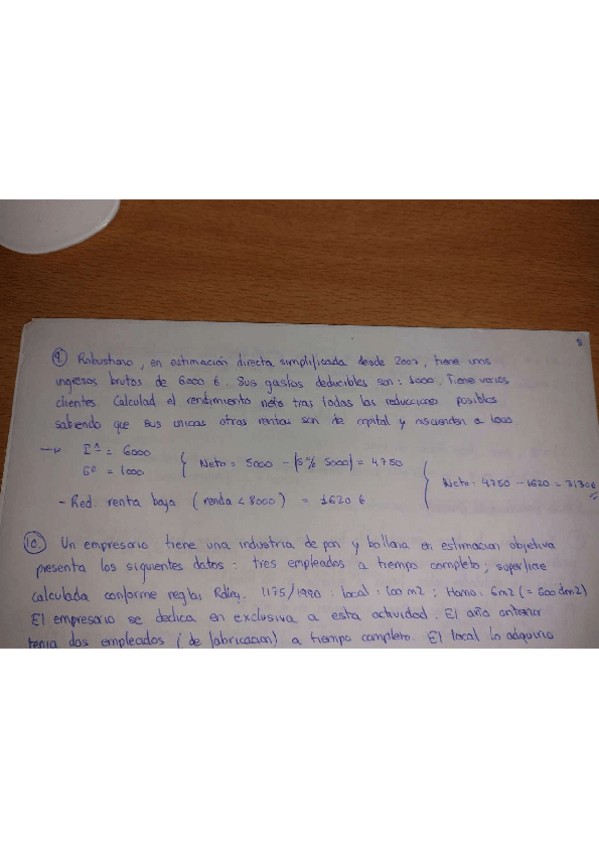 8
9. Robustiano, en estimación directa simplificada desde 2007, tiene unos
ingresos brutos de 6000 €. Sus gastos deducibles son: 1000. Tiene varios
clientes. Calculad el rendimiento neto tras todas las reducciones posibles
sabiendo que sus unicas otras rentas son de capital y ascienden a 1000
→ Iⁿ = 6000
Gº = 1000
{ Neto = 5000 - (5% 5000) = 4750
{ Neto = 4750 - 1620 = 3130€
- Red. renta baja (renda < 8000) = 1620 €
10. Un empresario tiene una industria de pan y bolleria en estimacion objetiva
presenta los siguientes datos: tres empleados a tiempo completo; superficie
calculada conforme reglas Rdleg. 1175/1990: local: 100 m2; Horno: 6m2 (= 600 dm2)
El empresario se dedica en exclusiva a esta actividad. El año anterior
tenia dos empleados (de fabricacion) a tiempo completo. El local lo adquirio